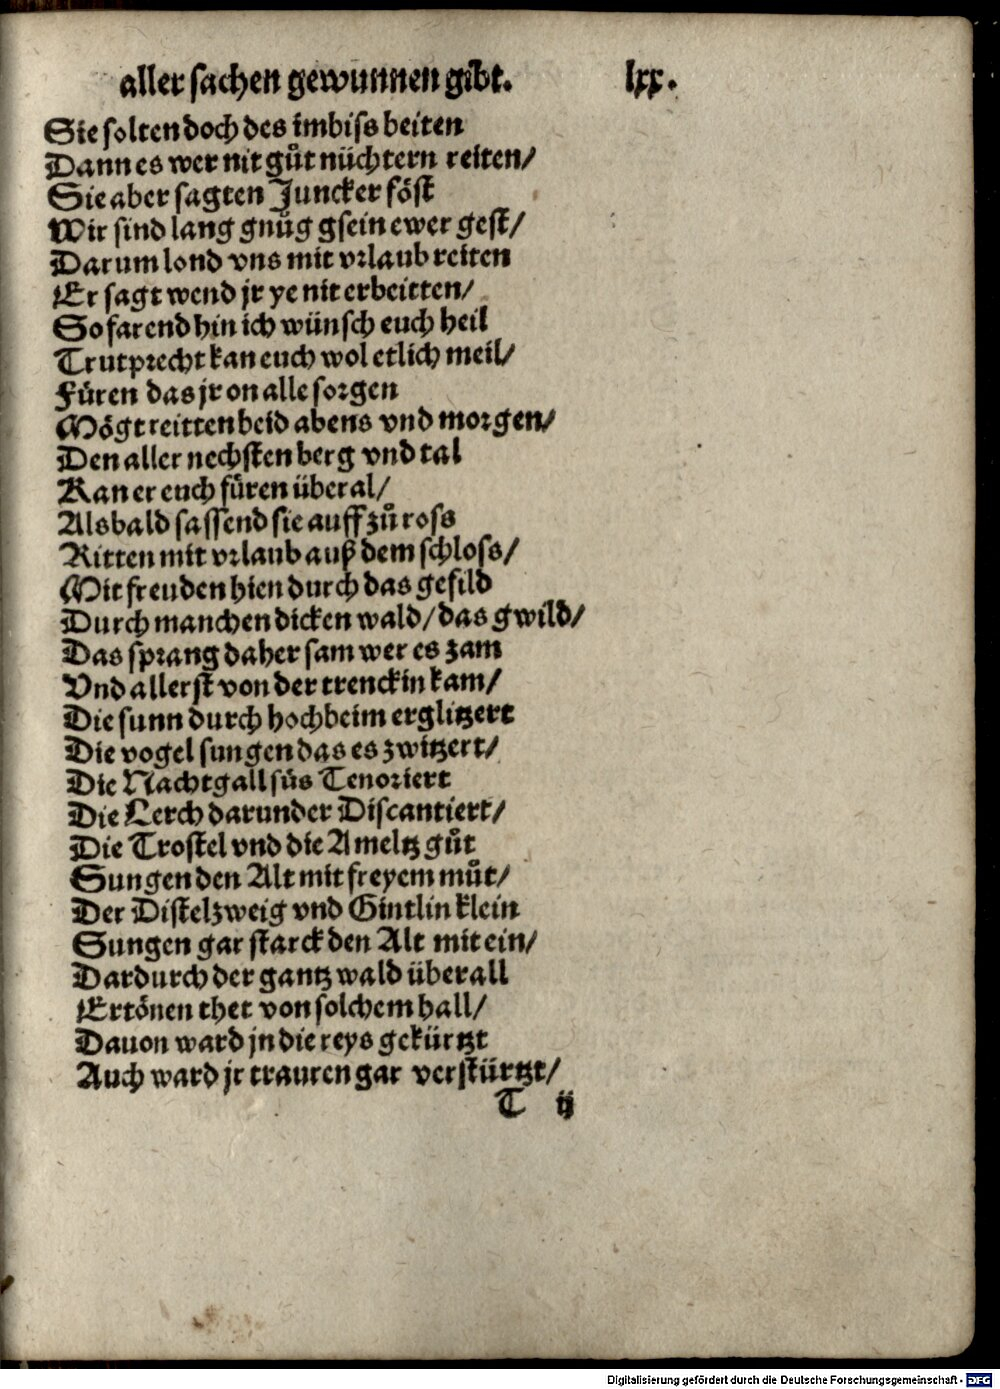 aller sachen gewunnen gibt. lxx.
Sie solten doch des imbiss beiten
Dann es wer nit gůt nüchtern reiten/
Sie aber sagten Juncker föst
Wir sind lang gnůg gsein ewer gest/
Darum lond vns mit vrlaub reiten
Er sagt wend jr ye nit erbeitten/
So farend hin ich wünsch euch heil
Trutprecht kan euch wol etlich meil/
Füren das jr on alle sorgen
Mögt reitten beid abens vnd morgen/
Den aller nechsten berg vnd tal
Kan er euch füren überal/
Alsbald sassend sie auff zů ross
Ritten mit vrlaub auß dem schloss/
Mit freuden hien durch das gefild
Durch manchen dicken wald/das gwild/
Das sprang daher sam wer es zam
Vnd allerst von der trenckin kam/
Die sunn durch hochbeim erglitzert
Die vogel sungen das es zwitzert/
Die Nachtgall süs Tenoriert
Die Lerch darunder Discantiert/
Die Trostel vnd die Ameltz gůt
Sungen den Alt mit freyem můt/
Der Distelzweig vnd Gintlin klein
Sungen gar starck den Alt mit ein/
Dardurch der gantz wald überall
Ertönen thet von solchem hall/
Dauon ward jn die reys gekürtzt
Auch ward jr trauren gar verstürtzt/
T ij
Digitalisierung gefördert durch die Deutsche Forschungsgemeinschaft - DFG